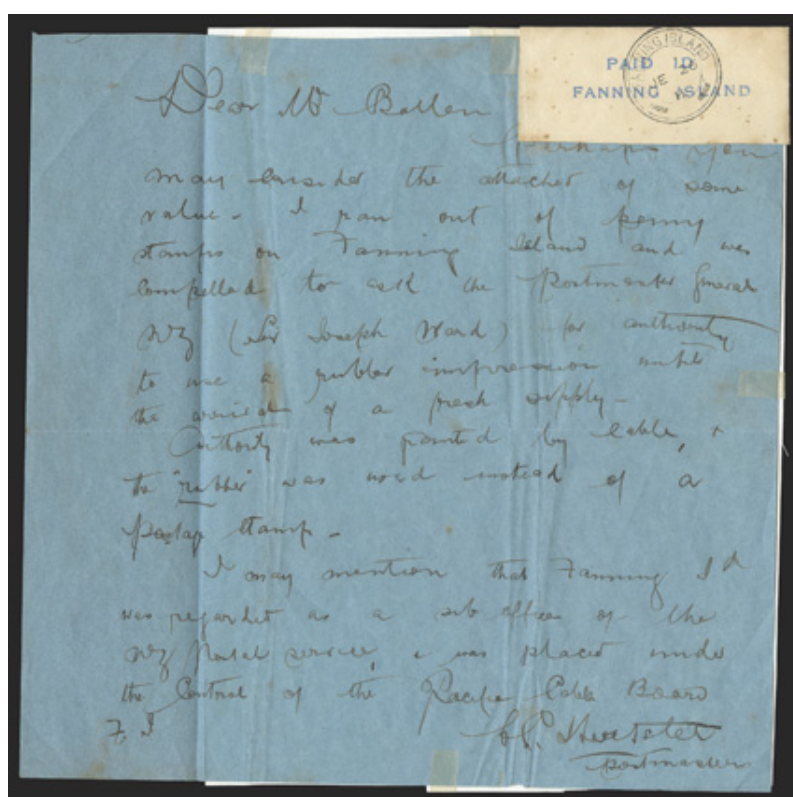 PAID 1D.
FANNING ISLAND
FANNING ISLAND
JE
Dear Mr
Perhaps you
may consider the attached of some
value - I ran out of penny
stamps on Fanning Island and was
compelled to ask the Postmaster General
NZ (Sir Joseph Ward) for authority
to use a rubber impression until
the arrival of a fresh supply -
Authority was granted by cable, &
the "rubber" was used instead of a
postage stamp -
I may mention that Fanning Id
was regarded as a sub office of the
NZ Postal service, & was placed under
the Control of the Pacific Cable Board
F. I
Postmaster